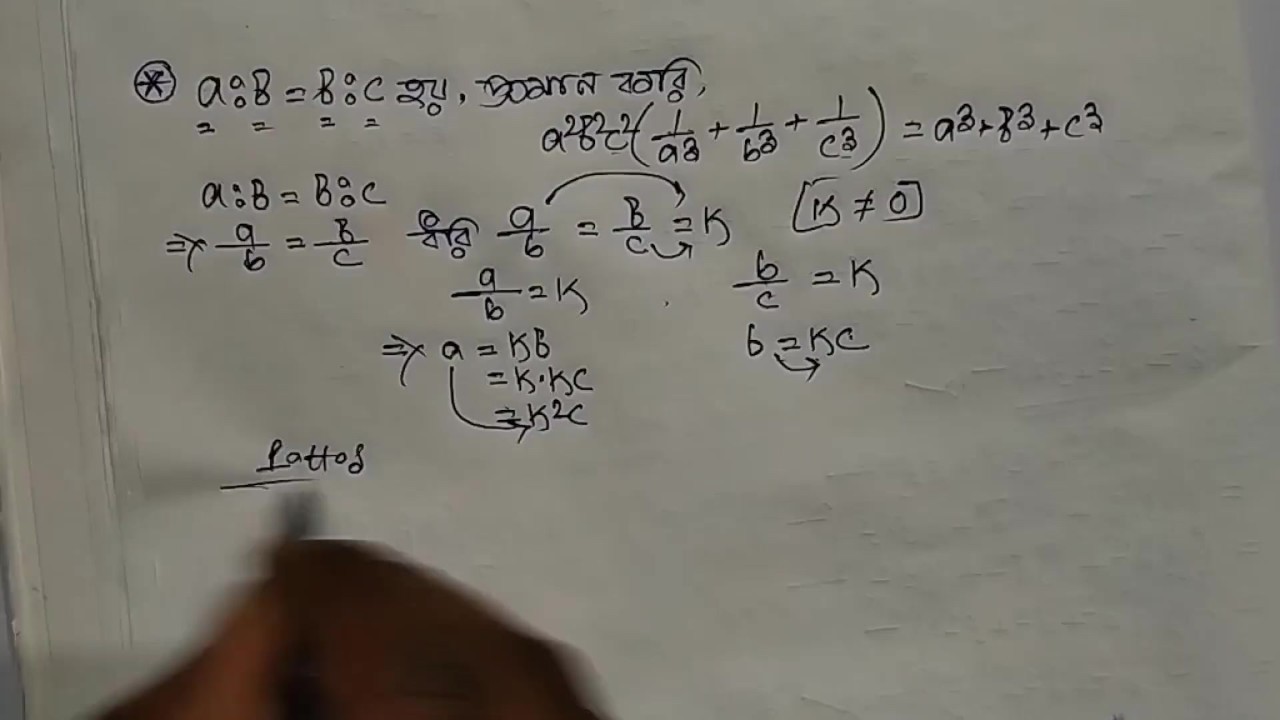 ⊛ a:B = B:C হয়, প্রমাণ করি,
a²B²c²(1/a³ + 1/b³ + 1/c³) = a³+B³+c³
a:B = B:C
⇒ a/b = B/c ধরি a/b = B/c = K [K ≠ 0]
a/b = K b/c = K
⇒ a = KB b = KC
= K·KC
= K²C